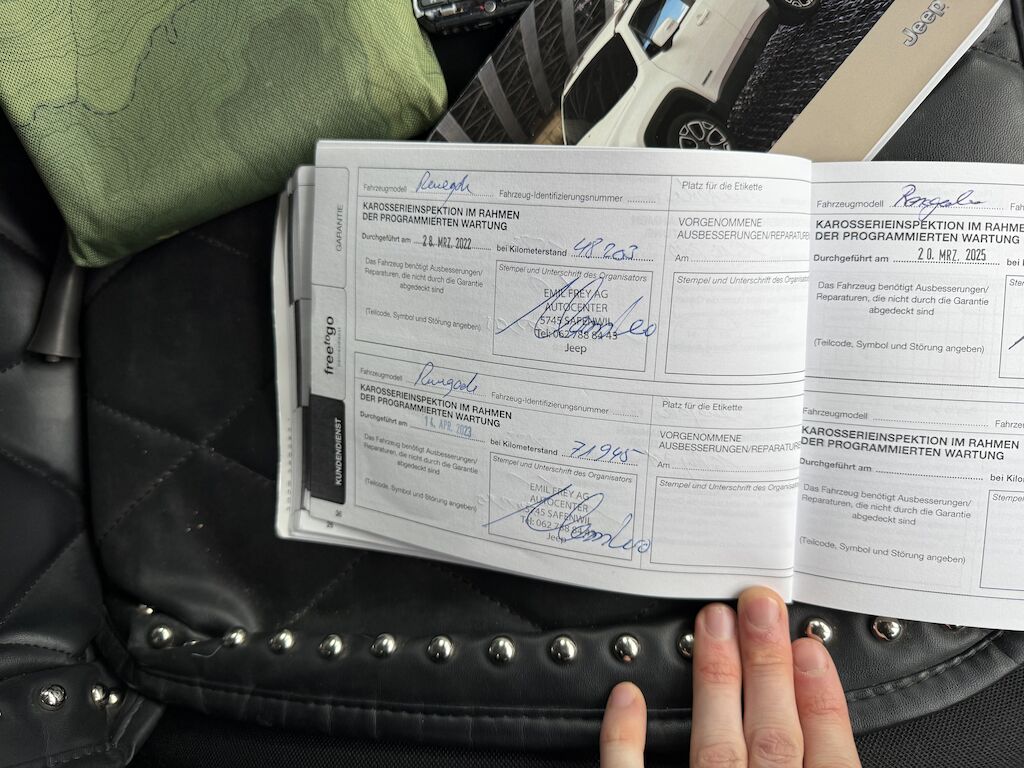 Jeep
GARANTIE
freetogo
KUNDENDIENST
Fahrzeugmodell Renegade Fahrzeug-Identifizierungsnummer
KAROSSERIEINSPEKTION IM RAHMEN
DER PROGRAMMIERTEN WARTUNG
Durchgeführt am 28. MRZ. 2022 bei Kilometerstand 48203
Das Fahrzeug benötigt Ausbesserungen/
Reparaturen, die nicht durch die Garantie
abgedeckt sind
(Teilcode, Symbol und Störung angeben)
Stempel und Unterschrift des Organisators
EMIL FREY AG
AUTOCENTER
5745 SAFENWIL
Tel: 062 788 84 43
Jeep
Platz für die Etikette
VORGENOMMENE
AUSBESSERUNGEN/REPARATUREN
Am
Stempel und Unterschrift des Organisators
Fahrzeugmodell Renegade Fahrzeug-Identifizierungsnummer
KAROSSERIEINSPEKTION IM RAHMEN
DER PROGRAMMIERTEN WARTUNG
Durchgeführt am 14. APR. 2023 bei Kilometerstand 71945
Das Fahrzeug benötigt Ausbesserungen/
Reparaturen, die nicht durch die Garantie
abgedeckt sind
(Teilcode, Symbol und Störung angeben)
Stempel und Unterschrift des Organisators
EMIL FREY AG
AUTOCENTER
5745 SAFENWIL
Tel: 062 788 84 43
Jeep
Platz für die Etikette
VORGENOMMENE
AUSBESSERUNGEN/REPARATUREN
Am
Stempel und Unterschrift des Organisators
Fahrzeugmodell Fah
KAROSSERIEINSPEKTION IM RAHMEN
DER PROGRAMMIERTEN WARTUNG
Durchgeführt am 20. MRZ. 2025 bei
Das Fahrzeug benötigt Ausbesserungen/
Reparaturen, die nicht durch die Garantie
abgedeckt sind
(Teilcode, Symbol und Störung angeben)
Fahrzeugmodell Fahrze
KAROSSERIEINSPEKTION IM RAHMEN
DER PROGRAMMIERTEN WARTUNG
Durchgeführt am bei Ki
Das Fahrzeug benötigt Ausbesserungen/
Reparaturen, die nicht durch die Garantie
abgedeckt sind
(Teilcode, Symbol und Störung angeben)
Stem